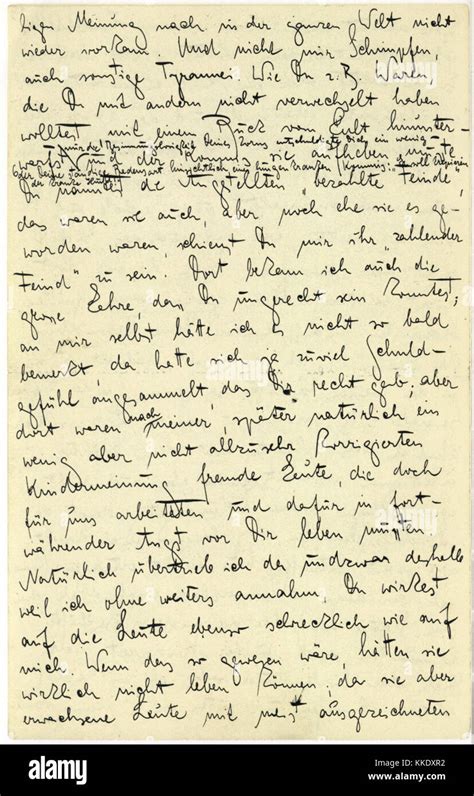 ziger Meinung nach in der ganzen Welt nicht
wieder vorkam. Und nicht nur Schimpfen,
auch sonstige Tyrannei. Wie Du z.B. Waren,
die Du mit andern nicht verwechselt haben
wolltest mit einem Ruck vom Pult hinunter-
warfst und der Kommis sie aufheben mußte.
Du nanntest die Angestellten "bezahlte Feinde",
das waren sie auch, aber noch ehe sie es ge-
worden waren, schienst Du mir ihr "zahlender
Feind" zu sein. Dort bekam ich auch die
grosse Lehre, dass Du ungerecht sein konntest;
an mir selbst hätte ich es nicht so bald
bemerkt, da hatte sich ja zuviel Schuld-
gefühl angesammelt, das Dir recht gab; aber
dort waren nach meiner, später natürlich ein
wenig aber nicht allzusehr korrigierten
Kindermeinung fremde Leute, die doch
für uns arbeiteten und dafür in fort-
währender Angst vor Dir leben mußten.
Natürlich übertrieb ich da undzwar deshalb
weil ich ohne weiters annahm, Du wirkest
auf die Leute ebenso schrecklich wie auf
mich. Wenn das so gewesen wäre, hätten sie
wirklich nicht leben können; da sie aber
erwachsene Leute mit meist ausgezeichneten
alamy
Image ID: KKDXR2
www.alamy.com